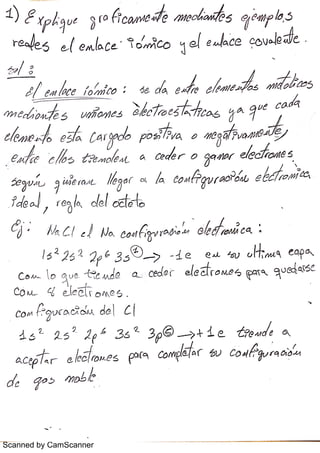 1) Explique graficamente mediantes ejemplos
reales el enlace iómico y el enlace covalente.
sol:
El enlace iómico: se da entre elementos metálicos
mediantes uniones electroestaticas ya que cada
elemento esta cargado positiva o negativamente,
entre ellos tienden a ceder o ganar electrones,
según quieran llegar a la configuración electronica
ideal, regla del octeto
Ej: NaCl el Na configuración electronica:
1s² 2s² 2p⁶ 3s① → -1e en su ultima capa
Con lo que tiende a ceder electrones para quedarse
con 8 electrones.
configuración del Cl
1s² 2s² 2p⁶ 3s² 3p⑤ → +1e tiende a
aceptar electrones para completar su configuración
de gas noble.
Scanned by CamScanner